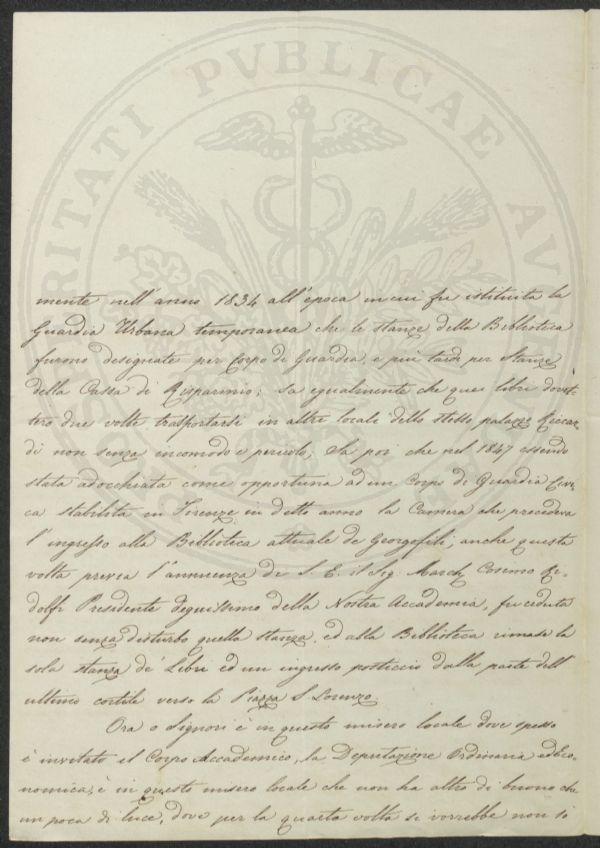 PROSPERITATI PVBLICAE AV
mente nell'anno 1834 all'epoca in cui fu istituita la
Guardia Urbana temporanea che le stanze della Biblioteca
furono designate per Corpo di Guardia, e più tardi per Stanze
della Cassa di Risparmio; Sa egualmente che quei libri dovet-
tero due volte trasportarsi in altre locali dello stesso palazzo Riccar-
di non senza incomodo e pericolo; Sa poi che nel 1847 essendo
stata adocchiata come opportuna ad un Corpo di Guardia Civi-
ca stabilita in Firenze in detto anno la Camera che precedeva
l'ingresso alla Biblioteca attuale de Georgofili, anche questa
volta previa l'annuenza di S. E. il Sig. March. Cosimo Ri-
dolfi Presidente degnissimo della Nostra Accademia, fu ceduta
non senza disturbo quella stanza, ed alla Biblioteca rimase la
sola stanza de' Libri ed un ingresso posticcio dalla parte dell'
ultimo cortile verso la Piazza S. Lorenzo.
Ora o Signori è in questo misero locale dove spesso
è invitato il Corpo Accademico, la Deputazione Ordinaria ed Eco-
nomica; è in questo misero locale che non ha altro di buono che
un poca di luce, dove per la quarta volta si vorrebbe non so